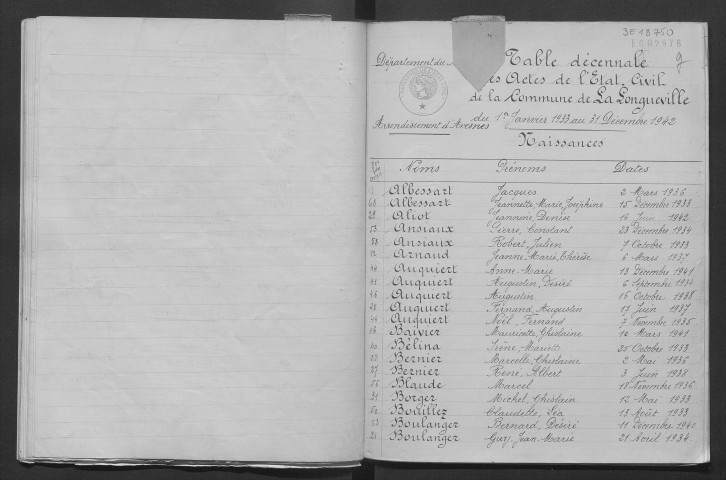 3E 18750
Département du
Table décennale
9
des Actes de l'Etat Civil
de la Commune de La Longueville
du 1er Janvier 1933 au 31 Décembre 1942
Arrondissement d'Avesnes
Naissances
Noms Prénoms Dates
Albessart Jacques 2 Mars 1936
Albessart Jeannette Marie Joséphine 15 Décembre 1933
Aliot Jeannine Denise 16 Juin 1942
Ansiaux Pierre, Constant 23 Décembre 1934
Ansiaux Robert, Julien 7 Octobre 1933
Arnaud Jeanne, Marie, Thérèse 6 Mars 1937
Auquiert Anne-Marie 13 Décembre 1941
Auquiert Augustin, Désiré 6 Septembre
Auquiert Augustin 16 Octobre 1938
Auquiert Fernand, Augustin 17 Juin 1937
Auquiert Noël, Fernand 7 Novembre 1935
Bavier Mauricette, Ghislaine 10 Mars 1941
Bélina Irène, Mariett 25 Octobre 1933
Bernier Marcelle, Ghislaine 2 Mai 1936
Bernier René, Albert 3 Juin 1938
Blaude Marcel 18 Novembre 1936
Borger Michel, Ghislain 12 Mai 1933
Bouillez Claudette, Léa 13 Août 1933
Boulanger Bernard, Désiré 11 Décembre 1940
21 Boulanger Guy, Jean-Marie 21 Avril 1934